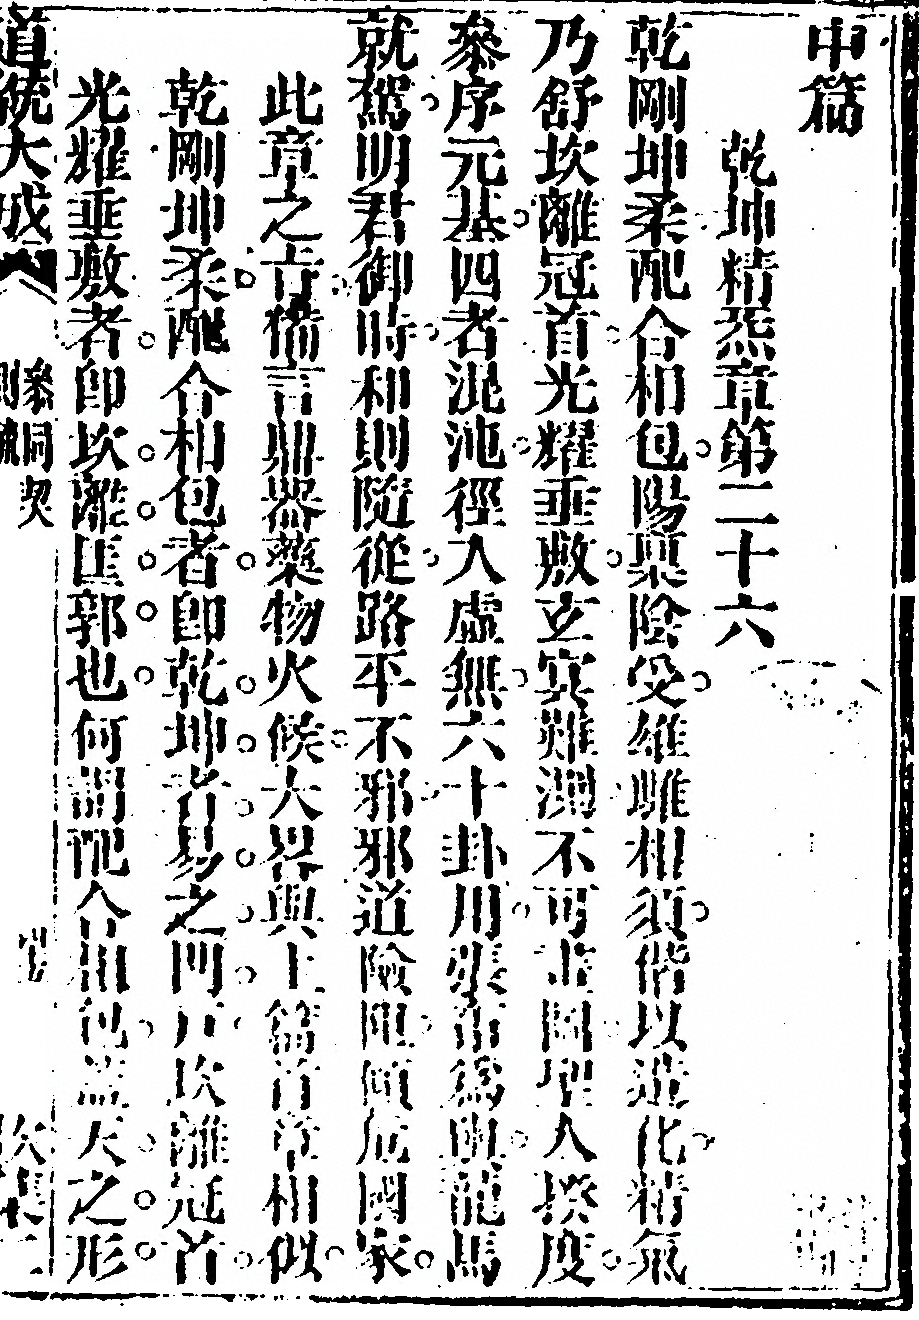 中篇
乾坤精炁章第二十六
乾剛坤柔配合相包陽稟陰受雄雌相須偕以造化精氣
乃舒坎離冠首光耀垂敷玄冥難測不可畫圖聖人揆度
叅序元基四者混沌徑入虛無六十卦用張布爲輿龍馬
就駕明君御時和則隨從路平不邪邪道險阻傾危國家
此章之旨備言鼎器藥物火候大畧與上篇首章相似
乾剛坤柔配合相包者卽乾坤者易之門戶坎離冠首
光耀垂敷者卽坎離匡郭也何謂配合相包盖天之形
道統大成
叅同契